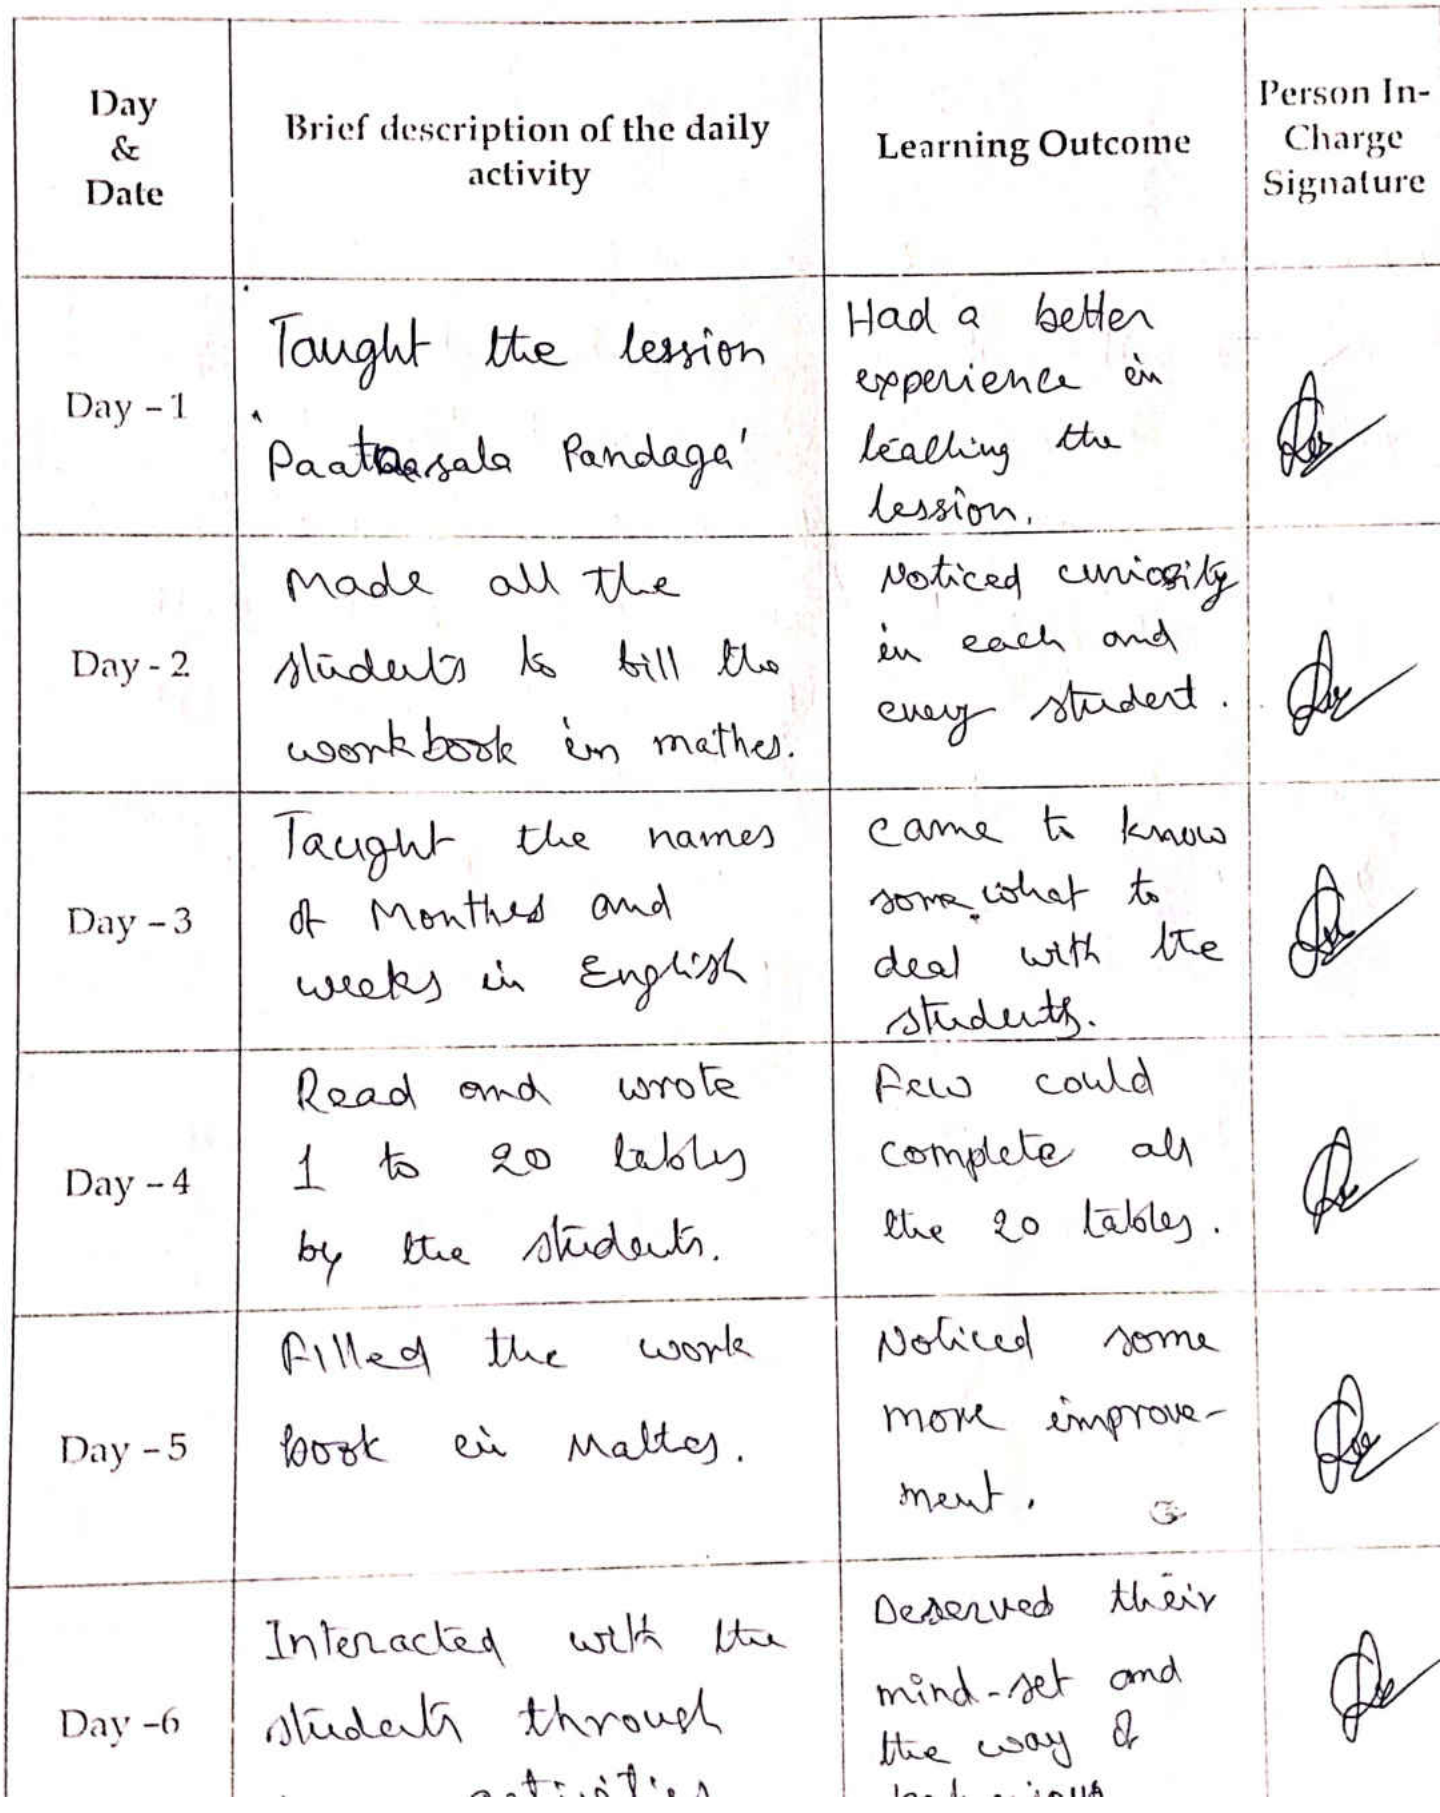 Day
&
Date
Brief description of the daily
activity
Learning Outcome
Person In-
Charge
Signature
Day – 1
Taught the lession
'Paataasala Pandaga'
Had a better
experience in
teaching the
lession.
Day - 2
Made all the
students to fill the
workbook in mathes.
Noticed curiosity
in each and
every student.
Day – 3
Taught the names
of Monthes and
weeks in English
came to know
some what to
deal with the
students.
Day – 4
Read and wrote
1 to 20 tables
by the students.
Few could
complete all
the 20 tables.
Day – 5
Filled the work
book in Mathes.
Noticed some
more improve-
ment.
Day –6
Interacted with the
students through
activities
Deserved their
mind-set and
the way of